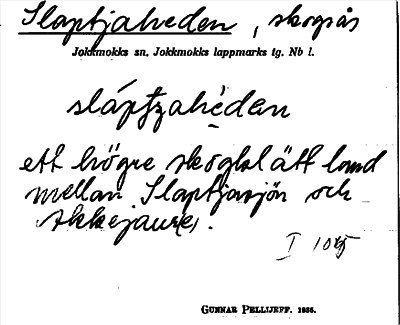 Slaptjaheden, skogsås
Jokkmokks sn, Jokkmokks lappmarks tg. Nb l.
slápt̨z̨ahèdan
ett högre skogklätt land
mellan Slaptjasjön och
Akkejaure.
I 10
GUNNAR PELLIJEFF. 1935.